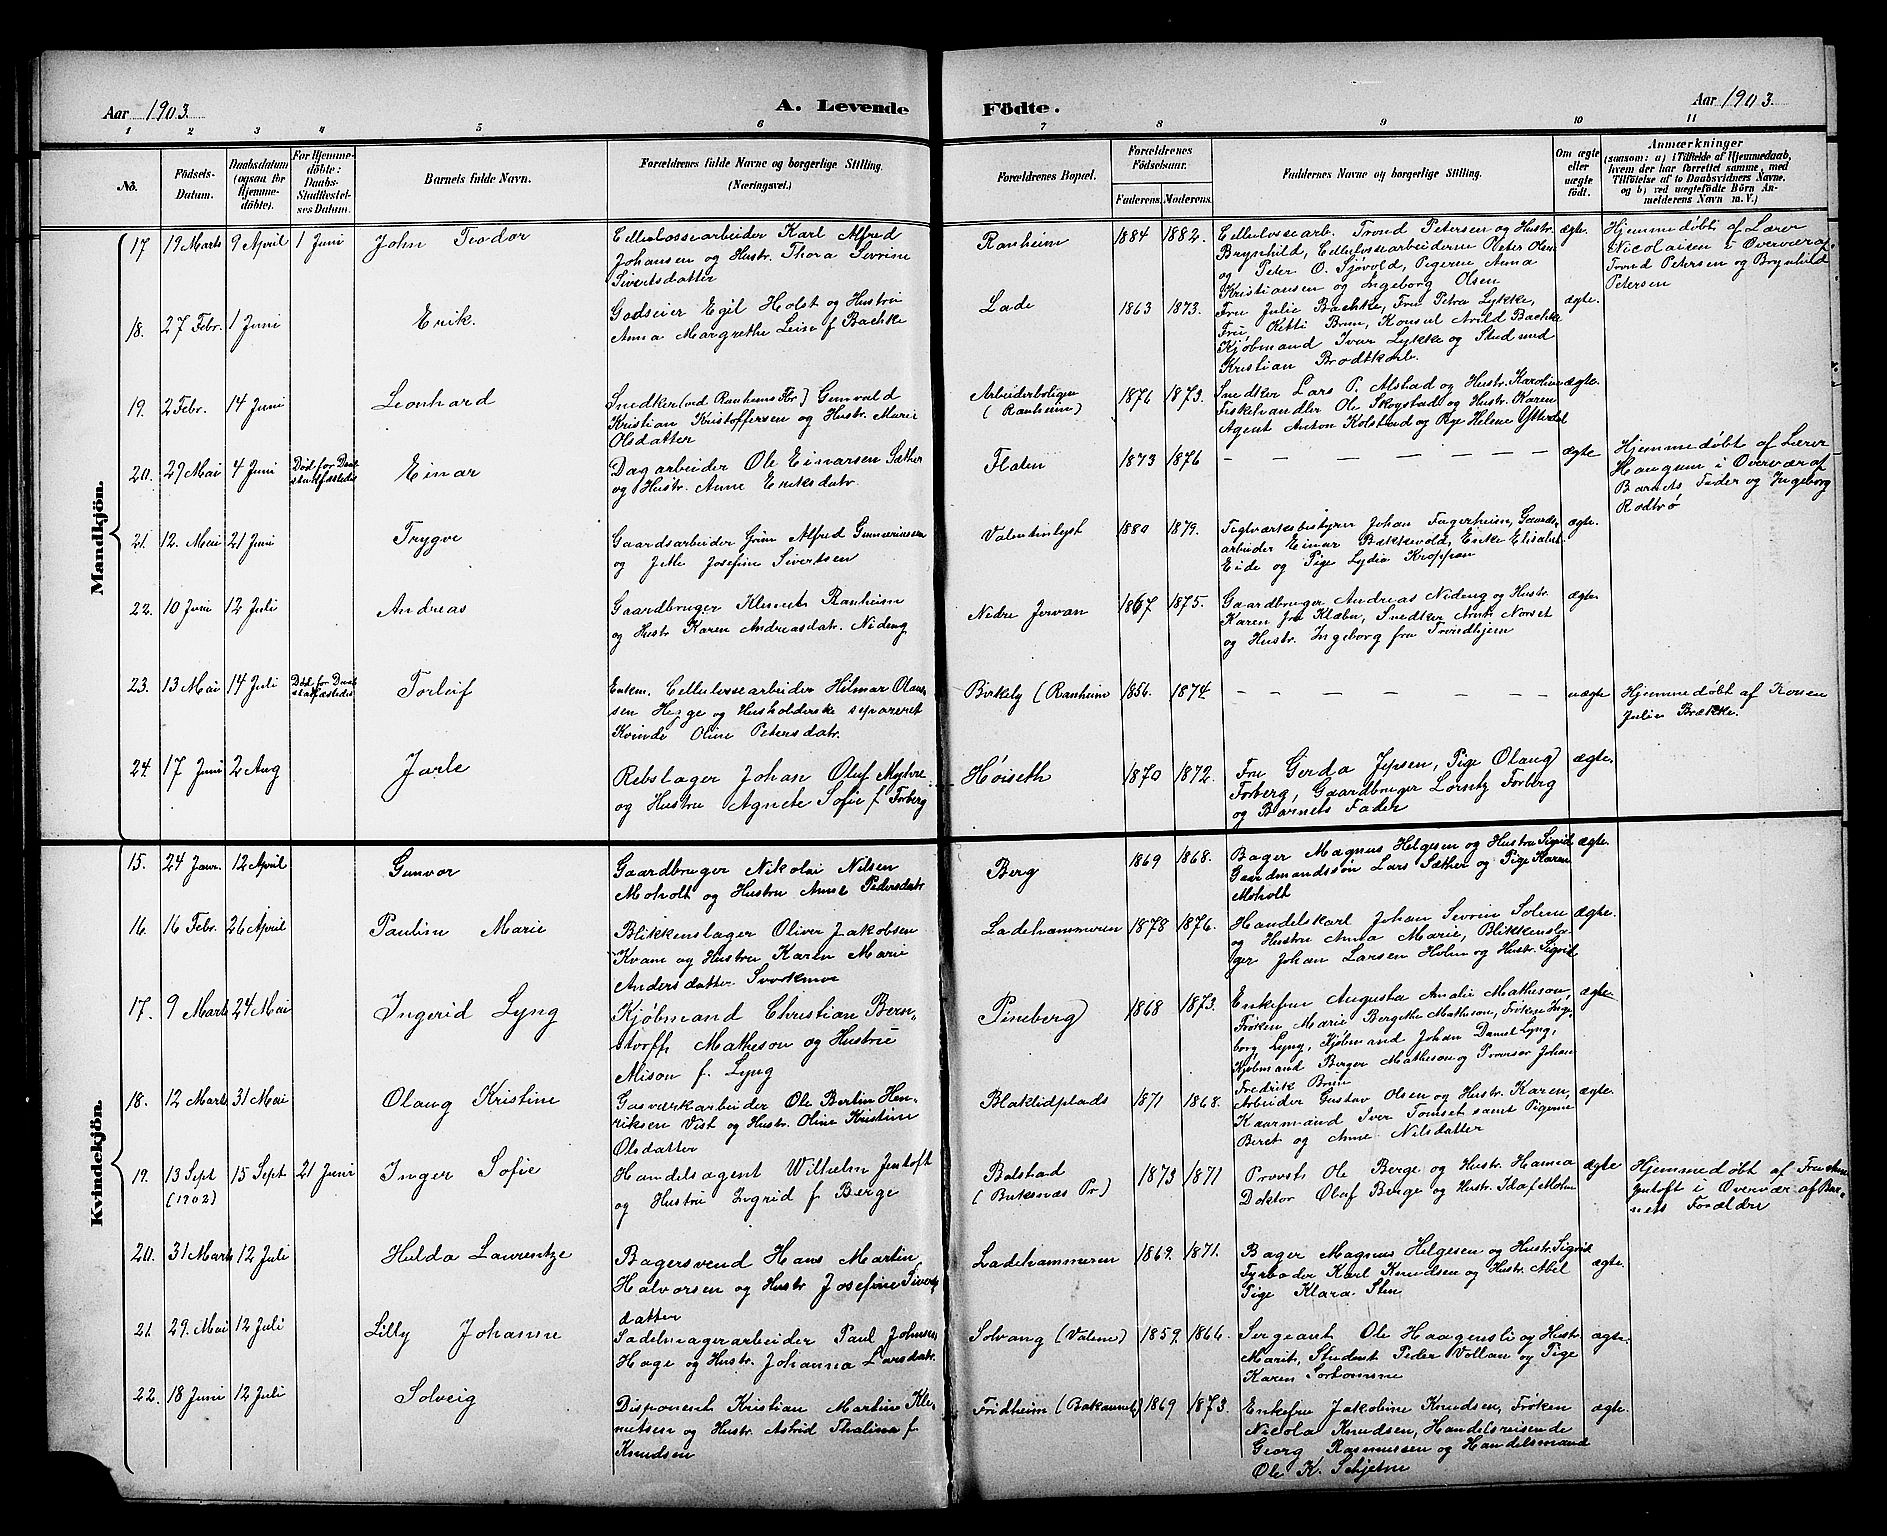 Aar 1903.
A. Levende Födte.
Aar 1903.
1 2 3 4 5 6 7 8 9 10 11
No.
Födsels-Datum.
Daabsdatum (ogsaa for Hjemme-döbte).
For Hjemme-döbte: Daabs-Stadfæstel-ses Datum.
Barnets fulde Navn.
Forældrenes fulde Navne og borgerlige Stilling. (Næringsvei.)
Forældrenes Bopæl.
Forældrenes Födselsaar.
Faderens. Moderens.
Faddernes Navne og borgerlige Stilling.
Om ægte eller uægte födt.
Anmærkninger
(saasom: a) i Tilfælde af Hjemmedaab, hvem der har forrettet samme, med Tilföielse af to Daabsvidners Navne, og b) ved uægtefödte Börn An-melderens Navn m. V.)
Mandkjön.
17 19 Marts 9 April 1 Juni John Teodor
Cellulossearbeider Karl Alfred
Johansen og Hustr. Thora Sevrine
Sivertsdatter
Ranheim 1884 1882.
Cellulossearb. Trond Petersen og Hustr.
Brynhild, Cellulossearbeiderne Peter Olsen
og Peter O. Sjøvold, Pigerne Anna
Kristiansen og Ingeborg Olsen
ægte.
Hjemmedøbt af Lærer
Nicolaisen i Overvær af
Trond Petersen og Brynhild
Petersen
18. 27 Febr. 1 Juni Erik.
Godseier Egil Holst og Hustru
Anna Margrethe Leise f. Bachke
Lade 1863 1873.
Fru Julie Bachke, Fru Petra Lykke,
Fru Kitti Brun, Konsul Arild Bachke
Kjøbmand Ivar Lykke og Stud med
Kristian Brodtkorb.
ægte.
19. 2 Febr. 14 Juni Leonhard
Snedker (ved Ranheims Fbr.) Gunvald
Kristian Kristoffersen og Hustr. Marie
Olsdatter
Arbeiderboligen
(Ranheim) 1876 1873.
Snedker Lars P. Alstad og Hustr. Karoline
Fiskehandler Ole Skogstad og Hustr. Karen
Agent Anton Kolstad og Pige Helene Ytterdal
ægte.
20. 29 Mai 4 Juni Død før Daab stadfæstedes Einar
Dagarbeider Ole Einarsen Sæther
og Hustr. Anne Eriksdatr.
Flaten 1873 1876
— — — — — — —
ægte
Hjemmedøbt af Lærer
Haugum i Overvær af
Barnets Fader og Ingeborg
Rødtrø
21. 12. Mai 21 Juni Trygve
Gaardsarbeider Alfred Gunnerinssen
og Josefine Sivertsen
Valentinlyst 1880 1879.
Teglværksbestyrer Johan Fagerheim, Gaards
arbeider Einar Bækkevold, Enke Elisabet
Eide og Pige Lydia Kroppan
ægte.
22. 10 Juni 12 Juli Andreas
Gaardbruger Klemet Ranheim
og Hustr Karen Andreasdatr. Nideng
Nedre Jervan 1867 1875.
Gaardbruger Andreas Nideng og Hustr.
Karen fra Klæbu, Snedker Arnt Norset
og Hustr. Ingeborg fra Trondhjem
ægte.
23. 13 Mai 14 Juli Død før Daab stadfæstedes Torleif
Enkem. Cellulossearbeider Hilmar Olaus-
sen Hegge og Husholderske separeret
Kvinde Oline Petersdatr.
Birkely (Ranheim 1856. 1874.
— — — — — — —
uægte
Hjemmedøbt af Konen
Julie Brække.
24. 17 Juni 2 Aug Jarle
Rebslager Johan Oluf Myhre
og Hustru Agnete Sofie f. Forberg
Høiseth 1870 1872.
Fru Gerda Jepsen, Pige Olaug
Forberg, Gaardbruger Lorentz Forberg
og Barnets Fader
ægte.
Kvindekjön.
15. 24 Janr. 12 April Gunvor
Gaardbruger Nikolai Nilsen
Moholt og Hustru Anne Pedersdatr.
Berg 1869 1868.
Bager Magnus Helgesen og Hustru Sigrid
Gaardmandssøn Lars Sæther og Pige Karen
Moholt
ægte.
16. 16 Febr. 26 April Pauline Marie
Blikkenslager Oliver Jakobsen
Kvam og Hustru Karen Marie
Andersdatter Svorkmoe
Ladehammeren 1878 1876.
Handelskarl Johan Sevrin Solem
og Hustru Anna Marie, Blikkensla-
ger Johan Larsen Holm og Hustr. Sigrid
ægte.
17. 9 Marts 24 Mai Ingerid Lyng
Kjøbmand Christian Bern-
storff Matheson og Hustru
Alison f. Lyng
Pineberg 1868 1873.
Enkefru Augusta Amalie Matheson,
Frøken Marie Bergithe Matheson, Frøken Inge-
borg Lyng, Kjøbmand Johan Daniel Lyng,
Kjøbmand Berger Matheson og Provisor Johan
Fredrik Brun
ægte.
18. 12 Marts 31 Mai Olaug Kristine
Gasværkarbeider Ole Bertin Hen-
riksen Vist og Hustr. Oline Kristine
Olsdatter
Blaklidplads 1871 1868.
Arbeider Gustav Olsen og Hustr. Karen,
Kaarmand Iver Tomset samt Pigerne
Beret og Anne Nilsdatter
ægte.
19. 13 Sept (1902) 15 Sept 21 Juni Inger Sofie
Handelsagent Wilhelm Jentoft
og Hustru Ingrid f. Berge
Balstad
(Buksnæs Pr.) 1873 1871
Provst Ole Berge og Hustr. Hanna
Doktor Olaf Berge og Hustr. Ida f. Mohn
ægte
Hjemmedøbt af Fru Anne
Jentoft i Overvær af Bar-
nets Forældre
20. 31 Marts 12 Juli Hilda Laurentze
Bagersvend Hans Martin
Halvorsen og Hustr Josefine Siverts
datter
Ladehammeren 1869. 1871.
Bager Magnus Helgesen og Hustr. Sigrid
Fyrbøder Karl Knudsen og Hustr. Abel
Pige Klara Sten
ægte.
21. 29. Mai 12 Juli Lilly Johanne
Sadelmagerarbeider Paul Johnsen
Hage og Hustr. Johanna Larsdatr.
Solvang (Valene) 1859. 1866.
Sergeant Ole Haagensli og Hustr
Marit, Student Peder Vollan og Pige
Karen
ægte.
22. 18 Juni 12 Juli Solveig
Disponent Kristian Martin Kle-
metsen og Hustr. Astrid Thalina f.
Knudsen
Fridheim (Bakaunet) 1869 1873.
Enkefru Jakobine Knudsen, Frøken
Nicola Knudsen, Handelsreisende
Georg Rasmussen og Handelsmand
Ole K. Schjetne
ægte.